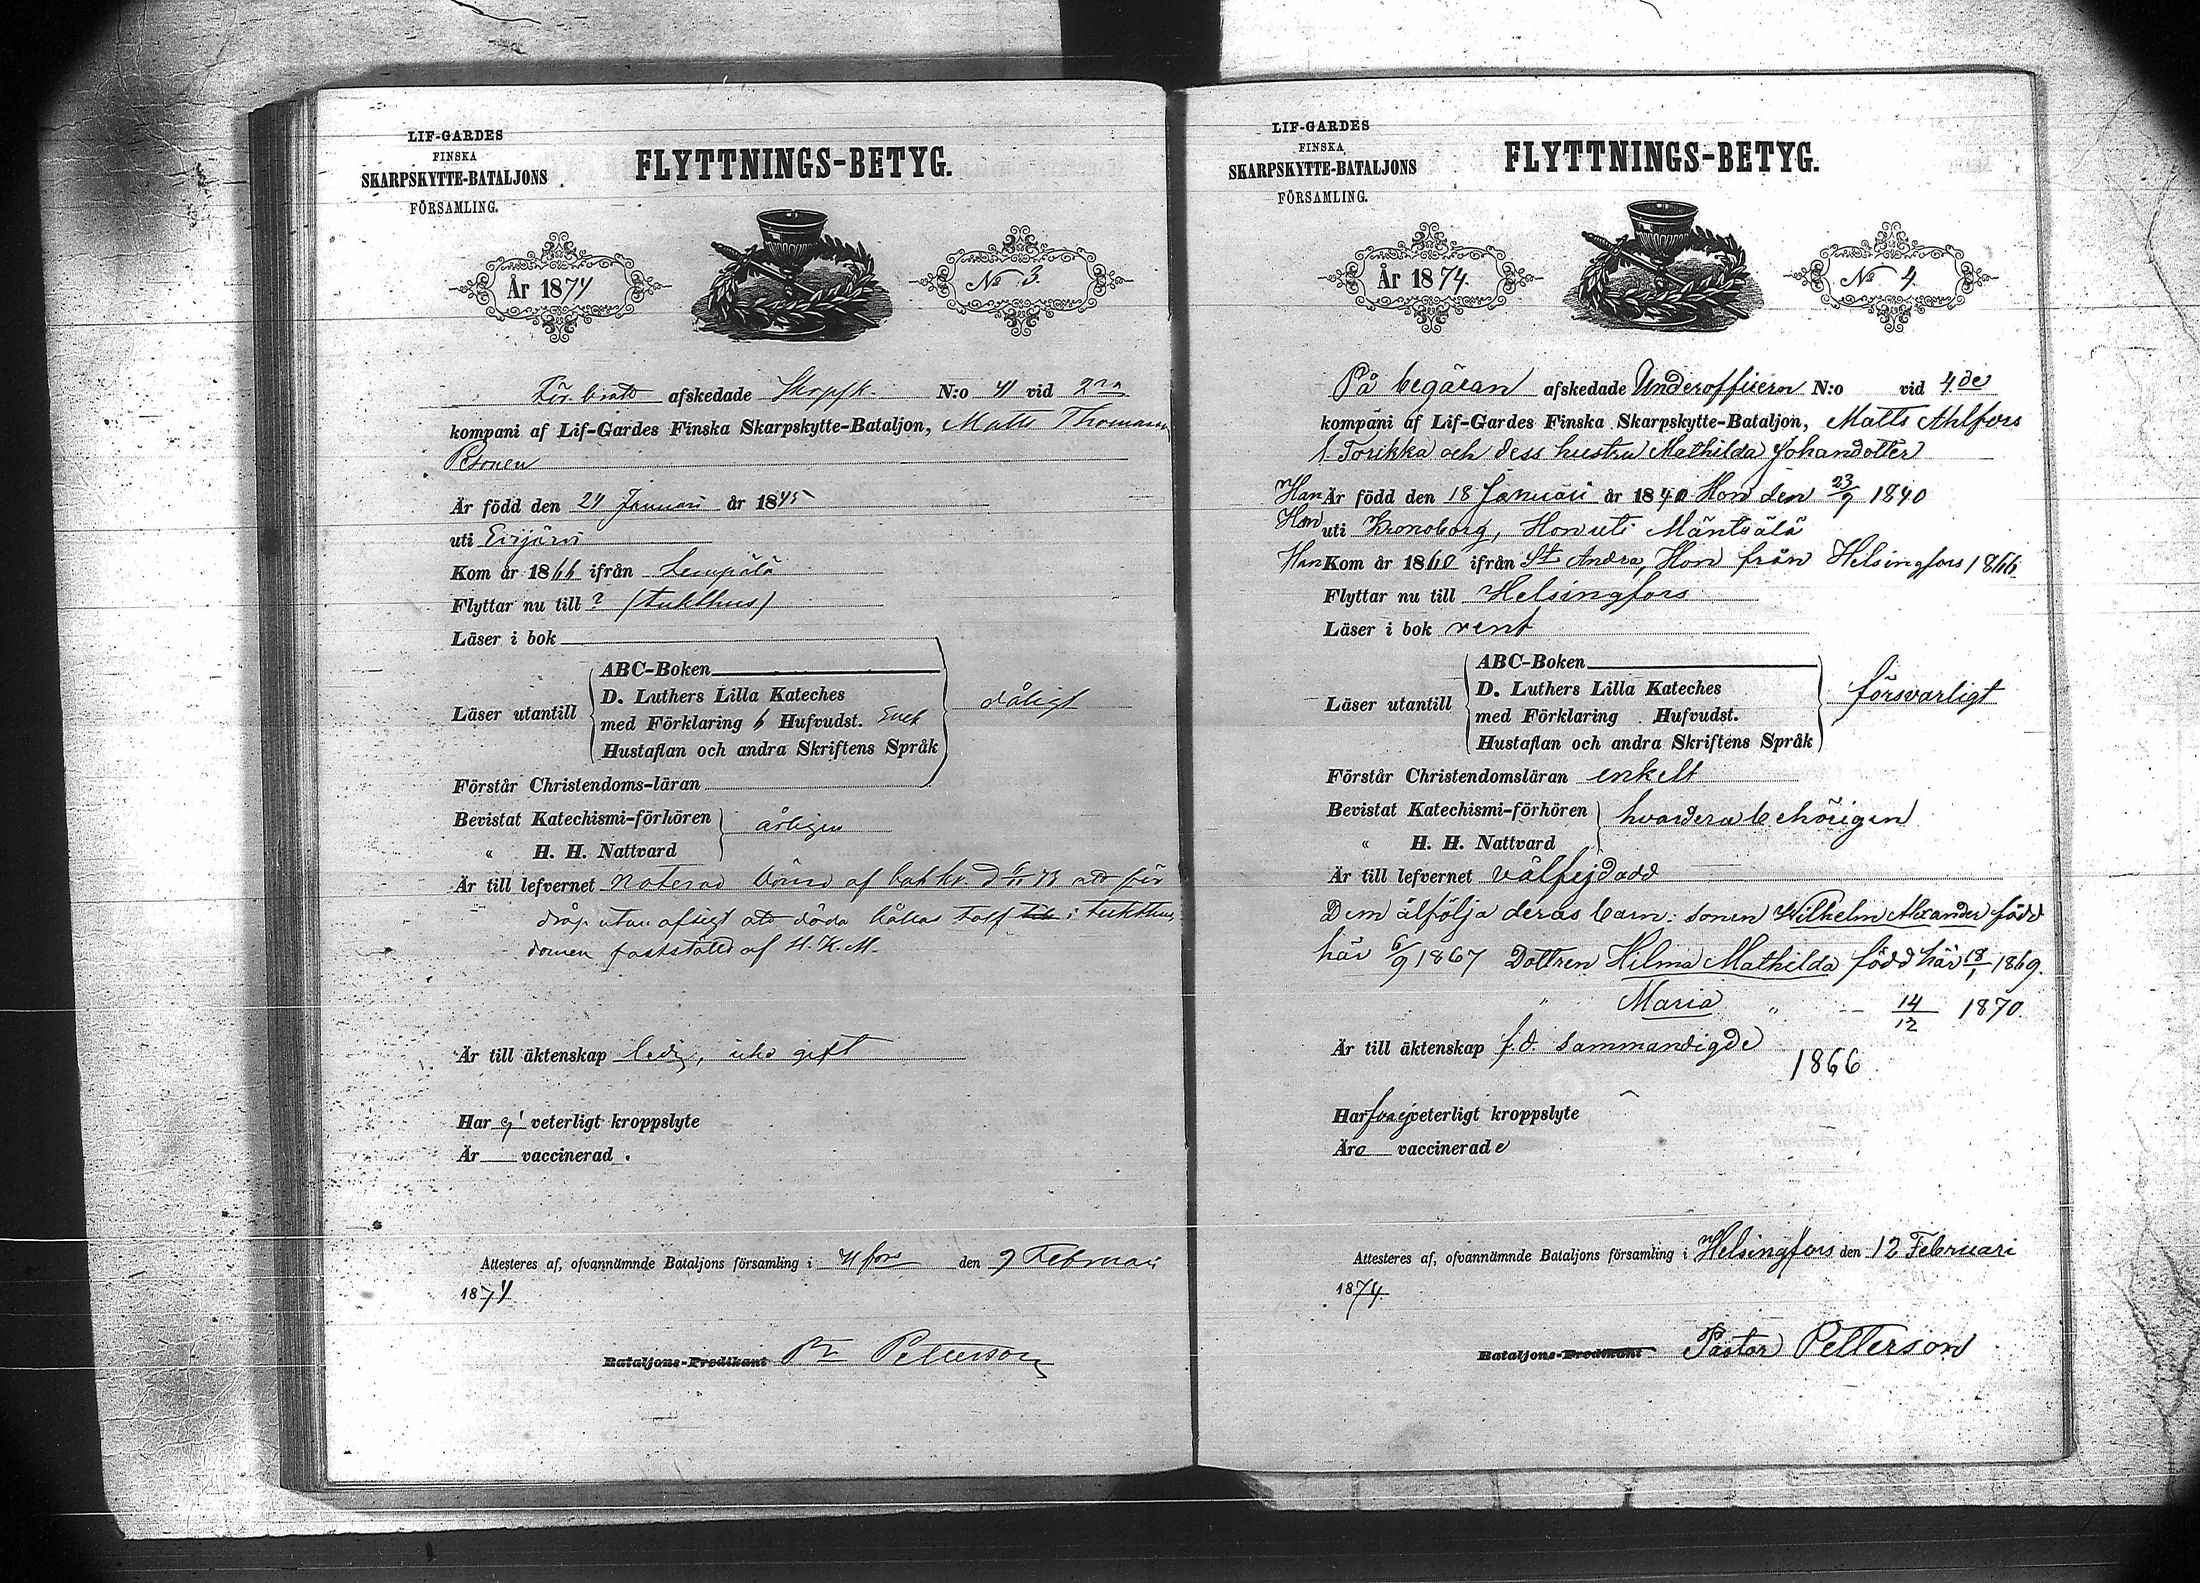 LIF-GARDES
FINSKA
SKARPSKYTTE-BATALJONS
FÖRSAMLING.
FLYTTNINGS-BETYG.
År 1874
No 3.
För brott afskedade Skrpsk. N:o 41 vid 2ra
kompani af Lif-Gardes Finska Skarpskytte-Bataljon, Matts Thomasson
Är född den 24 Januari år 1845
uti
Kom år 1866 ifrån Lempälä
Flyttar nu till ? (tukthus)
Läser i bok
Läser utantill
ABC-Boken
D. Luthers Lilla Kateches
med Förklaring 6 Hufvudst.
Hustaflan och andra Skriftens Språk
dåligt
Förstår Christendoms-läran
Bevistat Katechismi-förhören
" H. H. Nattvard
årligen
Är till lefvernet noterad dömd af 73 att för
dråp utan afsigt att döda hållas i tukthus,
domen fastställd af H. K. M.
Är till äktenskap ledig, icke gift
Har ej veterligt kroppslyte
Är vaccinerad.
Attesteres af, ofvannämnde Bataljons församling i H:fors den 9 Februari
1874
Bataljons-Predikant Petterson
LIF-GARDES
FINSKA
SKARPSKYTTE-BATALJONS
FÖRSAMLING.
FLYTTNINGS-BETYG.
År 1874.
No 4.
På begäran afskedade Underofficeren N:o vid 4de
kompani af Lif-Gardes Finska Skarpskytte-Bataljon, Matts Ahlfors
l. Torikka och dess hustru Mathilda Johansdotter
Han Är född den 18 Januari år 1840 Hon den 23/9 1840
Han uti Kronoborg, Hon uti Mäntsälä
Han Kom år 1860 ifrån St Andra, Hon från Helsingfors 1866
Flyttar nu till Helsingfors
Läser i bok rent
Läser utantill
ABC-Boken
D. Luthers Lilla Kateches
med Förklaring Hufvudst.
Hustaflan och andra Skriftens Språk
försvarligt
Förstår Christendomsläran enkelt
Bevistat Katechismi-förhören
" H. H. Nattvard
hvardera behörigen
Är till lefvernet välfejdadd
Dem älfölja deras barn: sonen Wilhelm Alexander född
här 6/9 1867 Dottren Hilma Mathilda född här 18/1 1869.
" Maria " — 14/12 1870.
Är till äktenskap f.d. sammanvigde
1866
Har veterligt kroppslyte
Äro vaccinerade
Attesteres af, ofvannämnde Bataljons församling i Helsingfors den 12 Februari
1874
Bataljons-Predikant Pastor Petterson